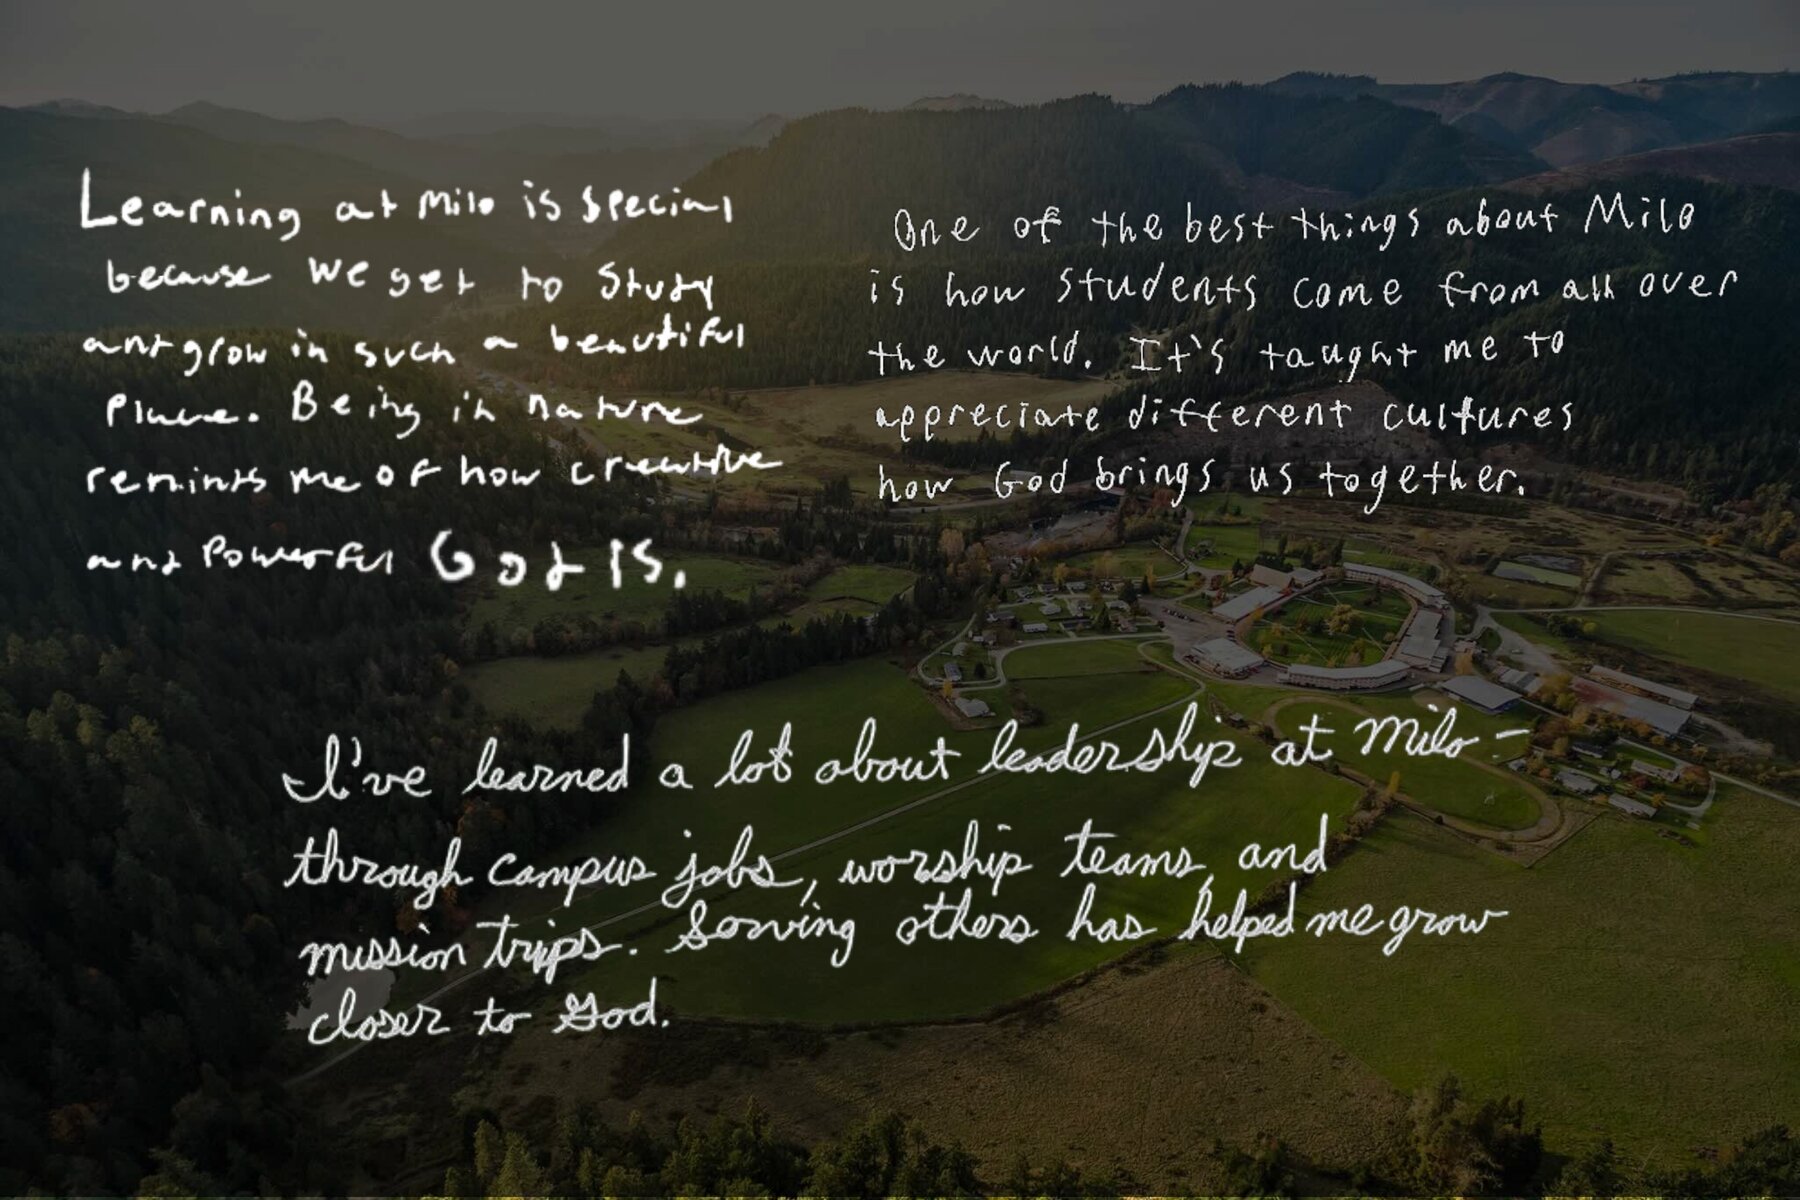 Learning at Milo is special
because we get to study
and grow in such a beautiful
place. Being in nature
reminds me of how creative
and powerful God is.
One of the best things about Milo
is how students come from all over
the world. It's taught me to
appreciate different cultures
how God brings us together.
I've learned a lot about leadership at Milo -
through campus jobs, worship teams, and
mission trips. Serving others has helped me grow
closer to God.